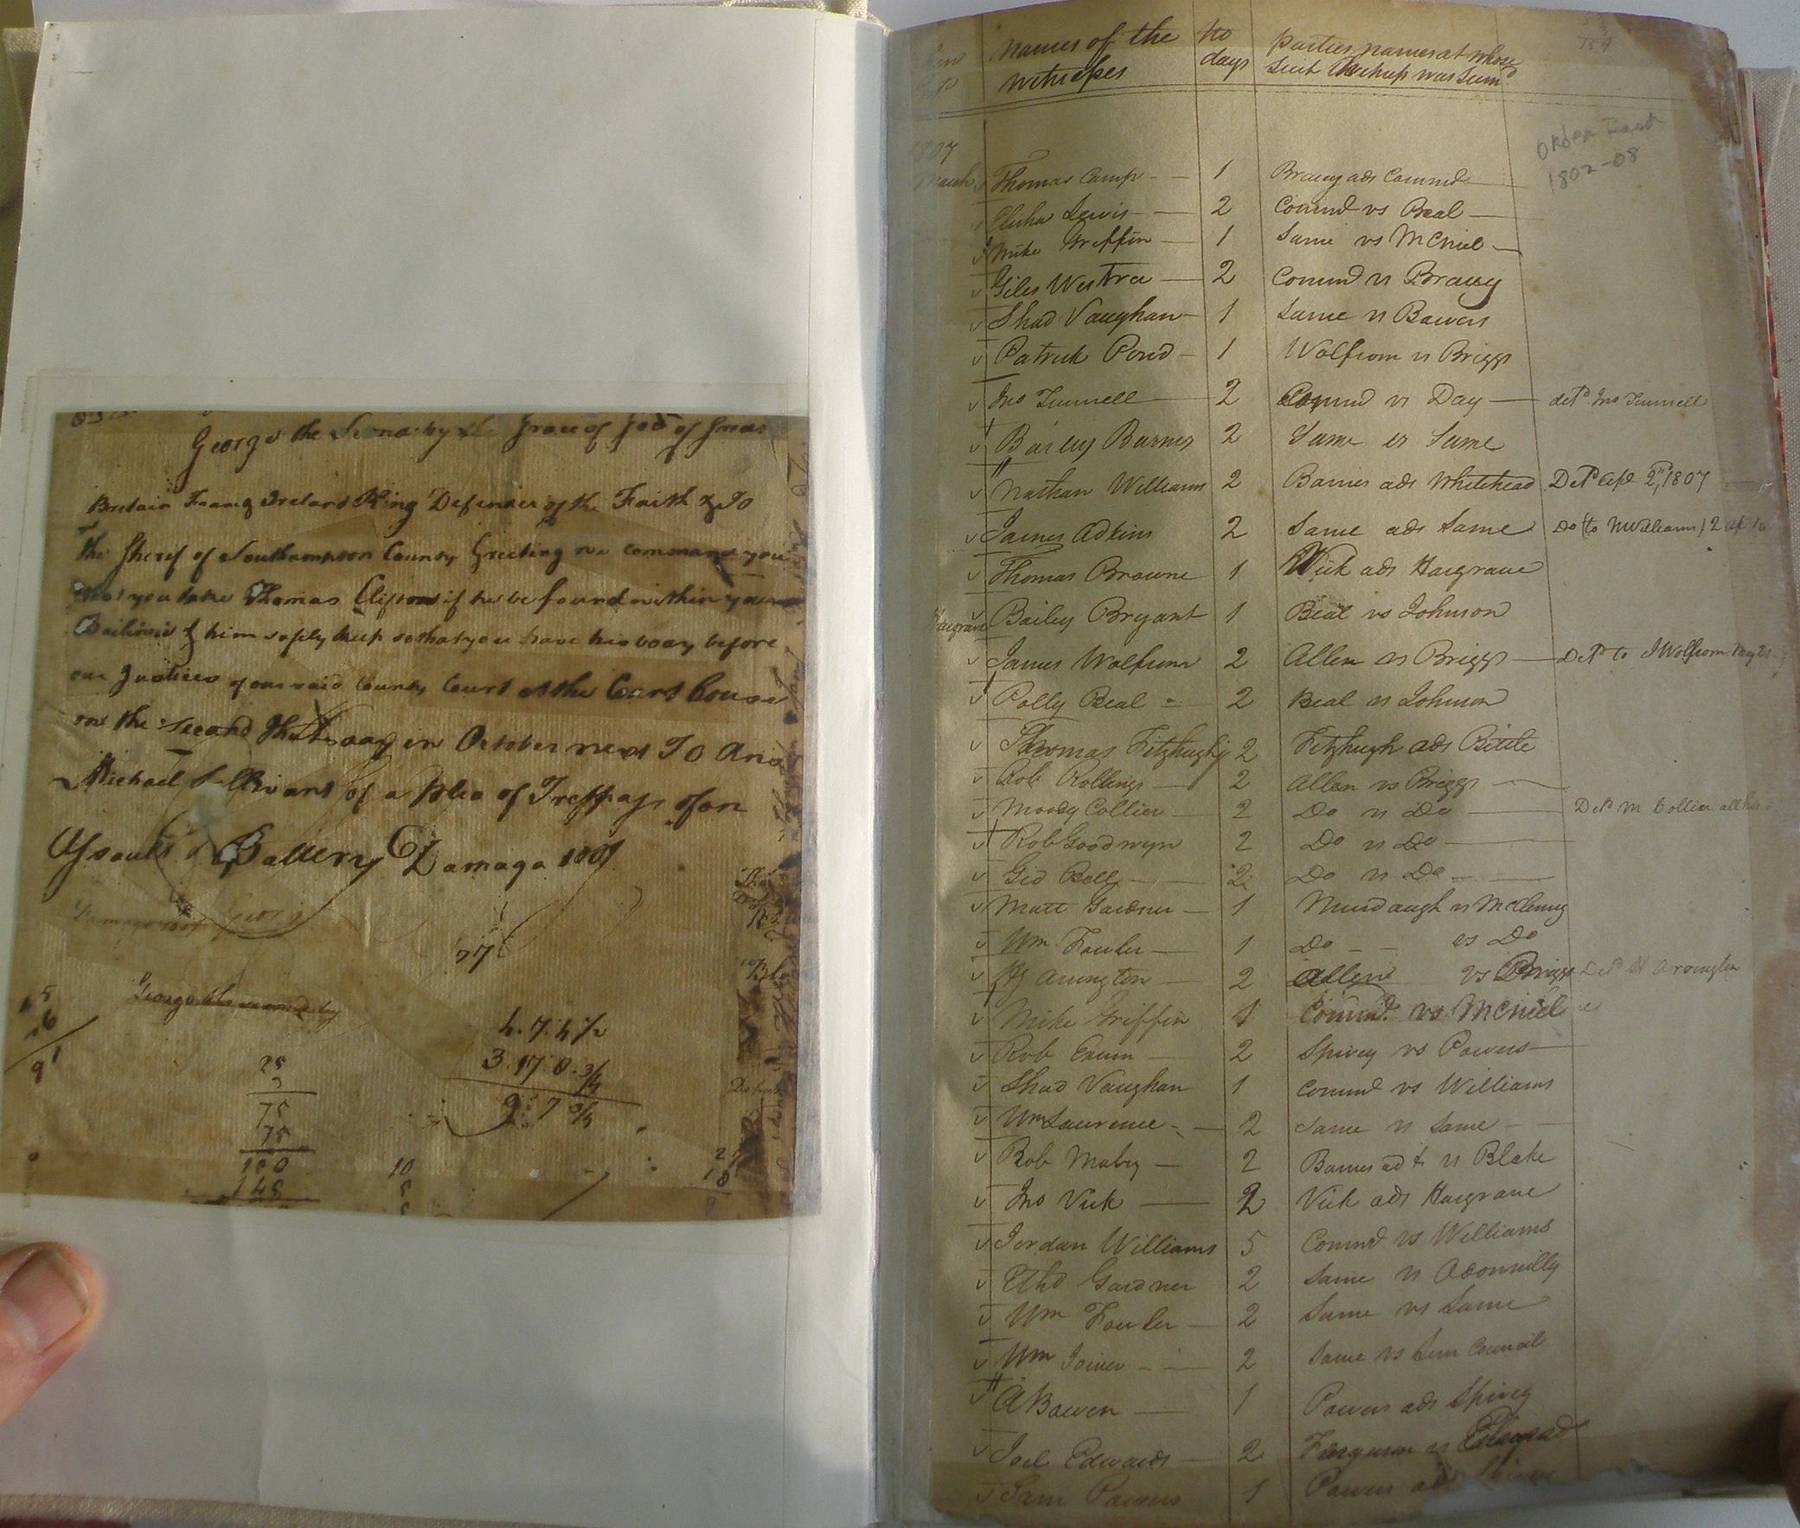 George the Second by the Grace of God of Great
Britain France Ireland King Defender of the Faith & To
the Sherif of Southampton County Greeting we command you
that you take Thomas Clifton if he be found within your
Bailiwic & him safely keep so that you have his body before
our Justices of our said County Court at the Court house
on the second Thursday in October next To Ans
Michael Sullivant of a plea of Trespass of an
Assault & Battery Damage 100
77
George the second by
5
6
9
25
3
75
75
150
148
10
4.7.4 1/2
3.17.8.3/4
9.7 3/4
names of the witnesses
No days
parties names at whose suit witness was sumd
154
Order Book
1802-08
1807
March Thomas Camp 1 Braey ads Commd
Elisha Lewis 2 Commd vs Beal
Mike Griffin 1 Same vs McNiel
Giles Westra 2 Commd vs Braey
Shad Vaughan 1 Same vs Bowers
Patrick Pond 1 Wolfrom vs Briggs
Jno Tunnell 2 Commd vs Day deld Jno Tunnell
Bailey Barnes 2 Same vs Same
Nathan Williams 2 Barnes ads Whitehead Deld Apl 2nd, 1807
James Adkins 2 Same ads Same Do (to N Williams) 2
Thomas Browne 1 Vick ads Hargrave
Hargrave Bailey Bryant 1 Beal vs Johnson
James Wolfrom 2 Allen vs Briggs Deld to J Wolfrom
Polly Beal 2 Beal vs Johnson
Thomas Fitzhugh 2 Fitzhugh ads Bittle
Rob Rollings 2 Allen vs Briggs
Moody Collier 2 Do vs Do Deld M Collier
Rob Goodwyn 2 Do vs Do
Geo Bell 2 Do vs Do
Matt Gardner 1 Murdaugh vs McClenny
Wm Fowler 1 Do vs Do
H Arrington 2 Allen vs Briggs Deld H Arrington
Mike Griffin 1 Commd. vs McNiel
Rob 2 Spivey vs Powers
Shad Vaughan 1 Commd vs Williams
Wm Lawrence 2 Same vs Same
Rob Mabry 2 Barnes vs Blake
Jno Vick 2 Vick ads Hargrave
Jordan Williams 5 Commd vs Williams
Ethd Gardner 2 Same vs
Wm Fowler 2 Same vs Same
Wm Joiner 2 Same vs Council
A Bowen 1 Powers ads Spivey
Joel Edwards 2 Ferguson vs
Sam Powers 1 Powers ads